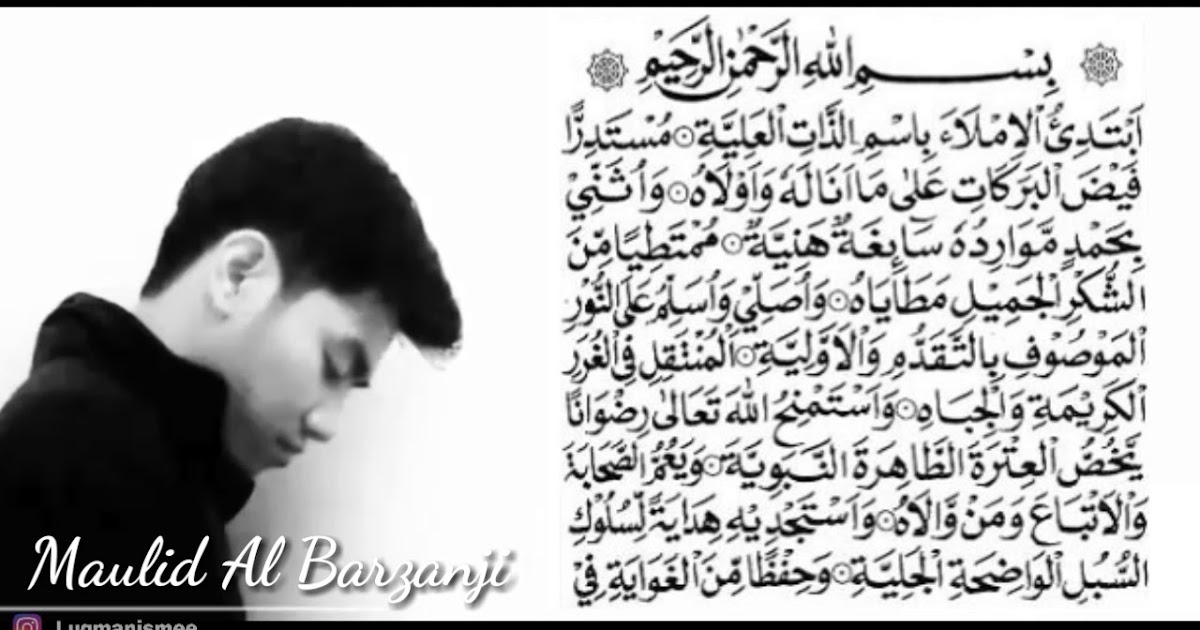 بِسْــــــمِ اللهِ الرَّحْمٰنِ الرَّحِيْمِ
اَبْتَدِئُ الْاِمْلَاءَ بِاسْمِ الذَّاتِ الْعَلِيَّةِ ۞ مُسْتَدِرًّا
فَيْضَ الْبَرَكَاتِ عَلٰى مَا اَنَالَهُ وَاَوْلَاهُ ۞ وَاُثَنِّيْ
بِحَمْدٍ مَّوَارِدُهُ سَائِغَةٌ هَنِيَّةٌ ۞ مُمْتَطِيًا مِّنَ
الشُّكْرِ الْجَمِيْلِ مَطَايَاهُ ۞ وَاُصَلِّيْ وَاُسَلِّمُ عَلَى النُّوْرِ
الْمَوْصُوْفِ بِالتَّقَدُّمِ وَالْاَوَّلِيَّةِ ۞ الْمُنْتَقِلِ فِي الْغُرَرِ
الْكَرِيْمَةِ وَالْجِبَاهِ ۞ وَاَسْتَمْنِحُ اللهَ تَعَالٰى رِضْوَانًا
يَّخُصُّ الْعِتْرَةَ الطَّاهِرَةَ النَّبَوِيَّةَ ۞ وَيَعُمُّ الصَّحَابَةَ
وَالْاَتْبَاعَ وَمَنْ وَّالَاهُ ۞ وَاَسْتَجْدِيْهِ هِدَايَةً لِّسُلُوْكِ
السُّبُلِ الْوَاضِحَةِ الْجَلِيَّةِ ۞ وَحِفْظًا مِّنَ الْغَوَايَةِ فِيْ
Maulid Al Barzanji
Luqmanismee